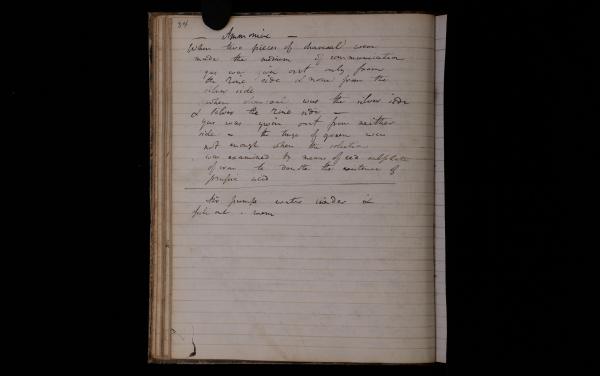 34
— Ammonia —
When two pieces of charcoal were
made the medium of communication
gas was given out only from
the zinc side & none from the
silver side
when charcoal was the silver side
& silver the zinc side —
gas was given out from neither
side — the tinge of green were
not enough when the solution
was examined by means of red sulphate
of iron to denote the existence of
prussic acid
pump water